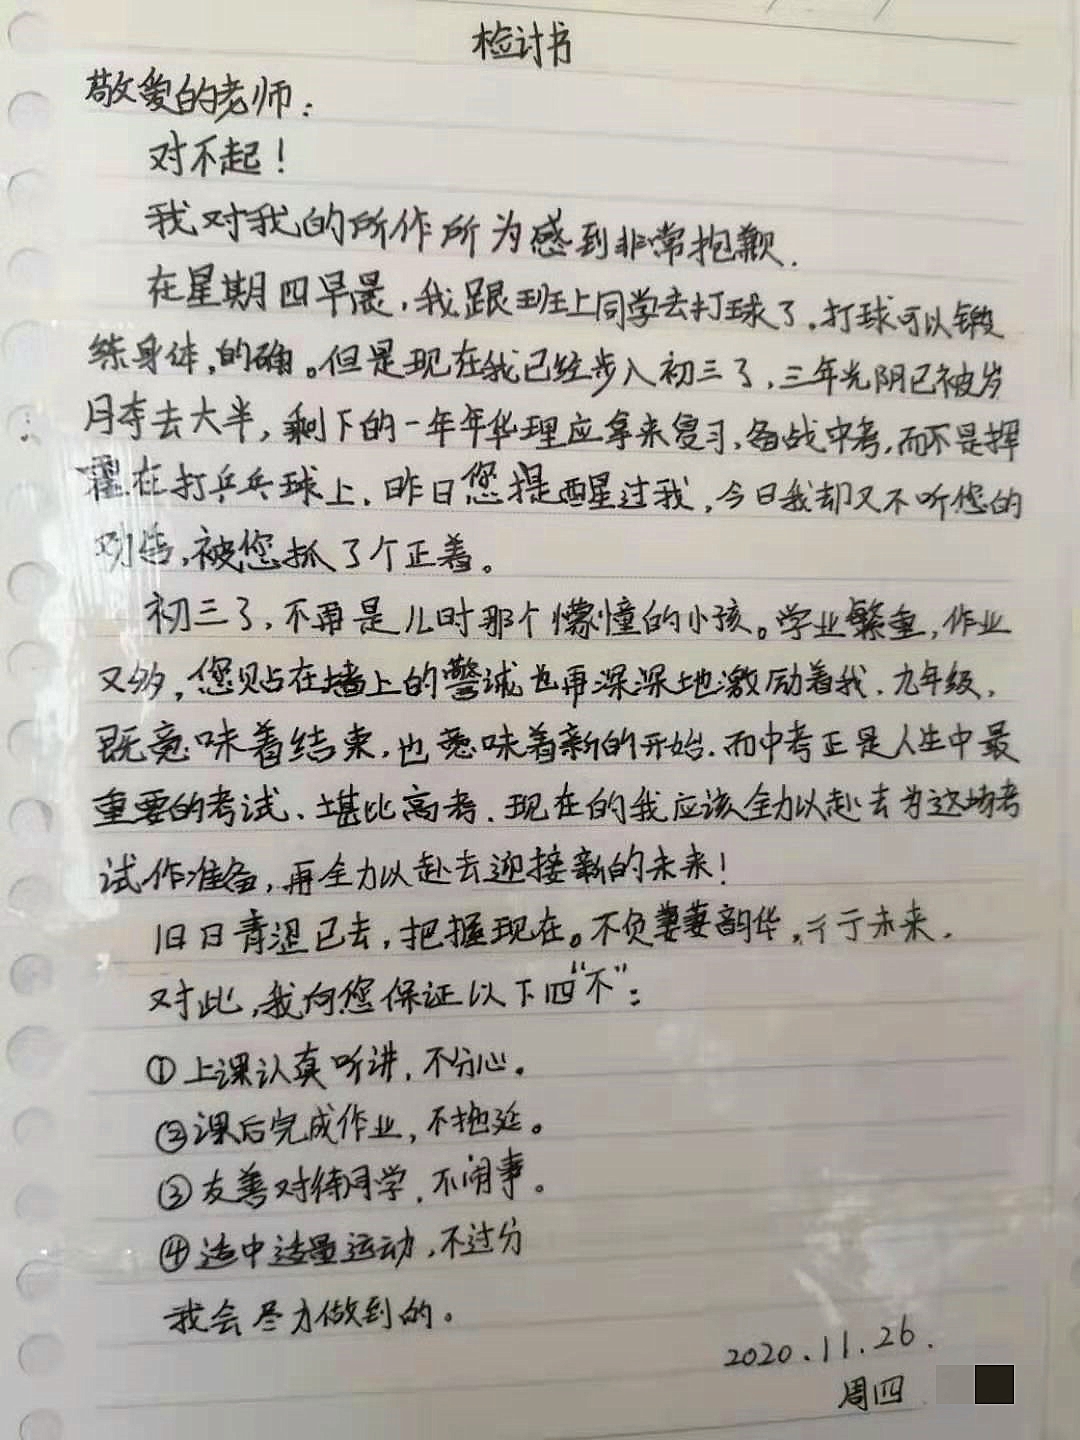 检讨书
敬爱的老师：
对不起！
我对我的所作所为感到非常抱歉.
在星期四早晨，我跟班上同学去打球了。打球可以锻
练身体，的确。但是现在我已经步入初三了，三年光阴已被岁
月夺去大半，剩下的一年年华理应拿来复习、备战中考，而不是挥
霍在打乒乓球上，昨日您提醒过我，今日我却又不听您的
劝告，被您抓了个正着。
初三了，不再是儿时那个懵懂的小孩。学业繁重，作业
又多，您贴在墙上的警诫也再深深地激励着我．九年级，
既意味着结束，也意味着新的开始．而中考正是人生中最
重要的考试、堪比高考．现在的我应该全力以赴去为这场考
试作准备，再全力以赴去迎接新的未来！
旧日青涩已去，把握现在。不负萋萋韵华，于未来．
对此，我向您保证以下四“不”：
①上课认真听讲，不分心。
②课后完成作业，不拖延。
③友善对待同学，不闹事。
④适中适量运动，不过分
我会尽力做到的。
2020.11.26.
周四